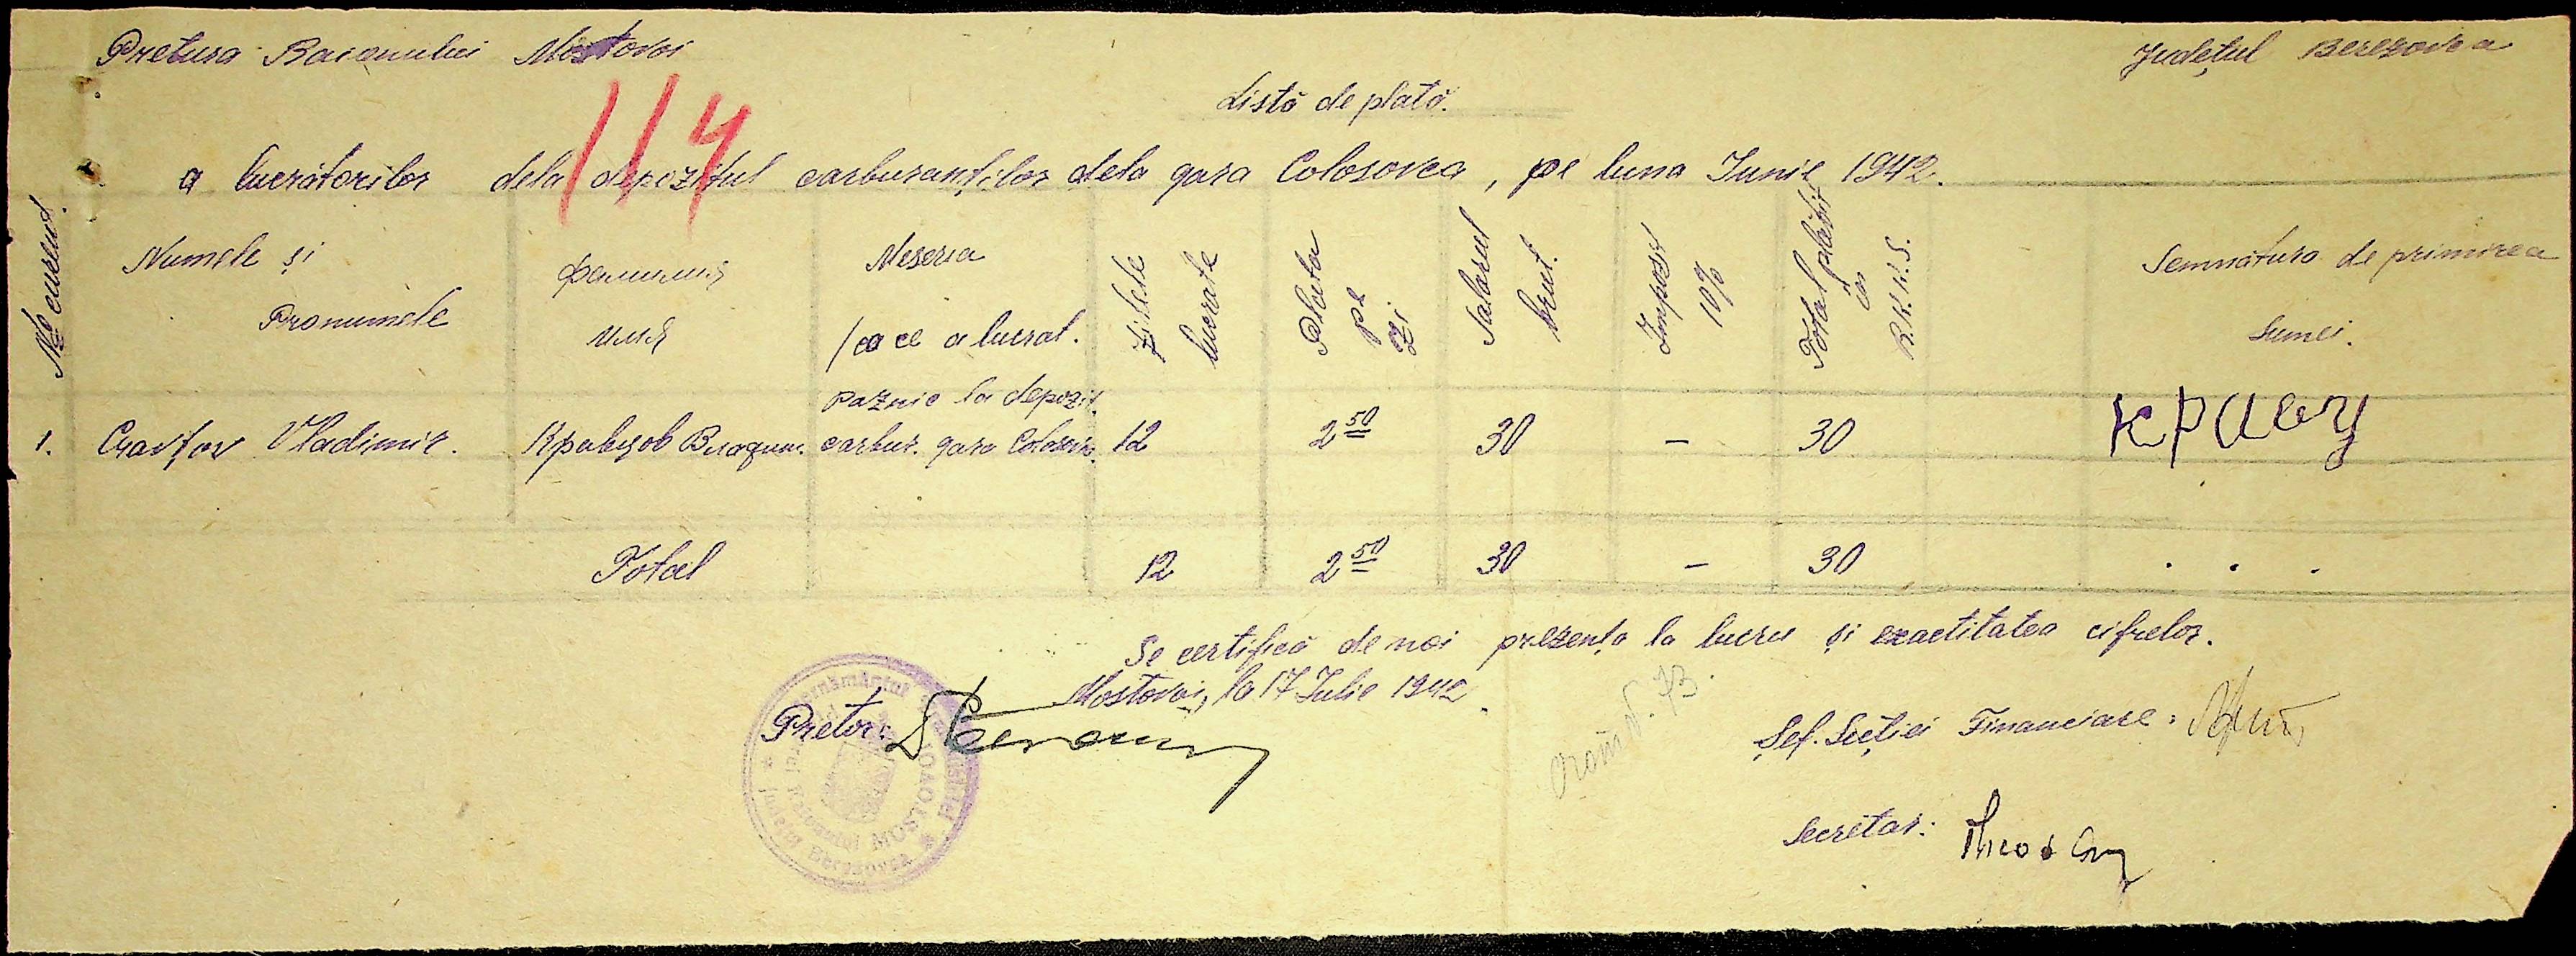 Pretura Raionului Mostovoi
Județul Berezovca
114
Listă de plată.
a lucrătorilor dela depozitul carburanților dela gara Colosovca, pe luna Iunie 1942.
№ curent.
Numele și
Pronumele
фамилия
имя
Meseria
/ca ce a lucrat.
Zilele
lucrate
Plata
pe
zi
Salarul
brut.
Impozit
10%
Total plătit
în
R.K.K.S.
Semnătura de primirea
sumei.
1. Cravțov Vladimir.
Кравцов Владим.
Paznic la depozit.
carbur. gara Colosovca.
12
2 50
30
–
30
Кравц
Total
12
2 50
30
–
30
. . .
Se certifică de noi prezența la lucru și exactitatea cifrelor.
Mostovoi, la 17 Iulie 1942.
Pretor:
Șef. Secției Financiare:
Secretar:
MOSTOVOI